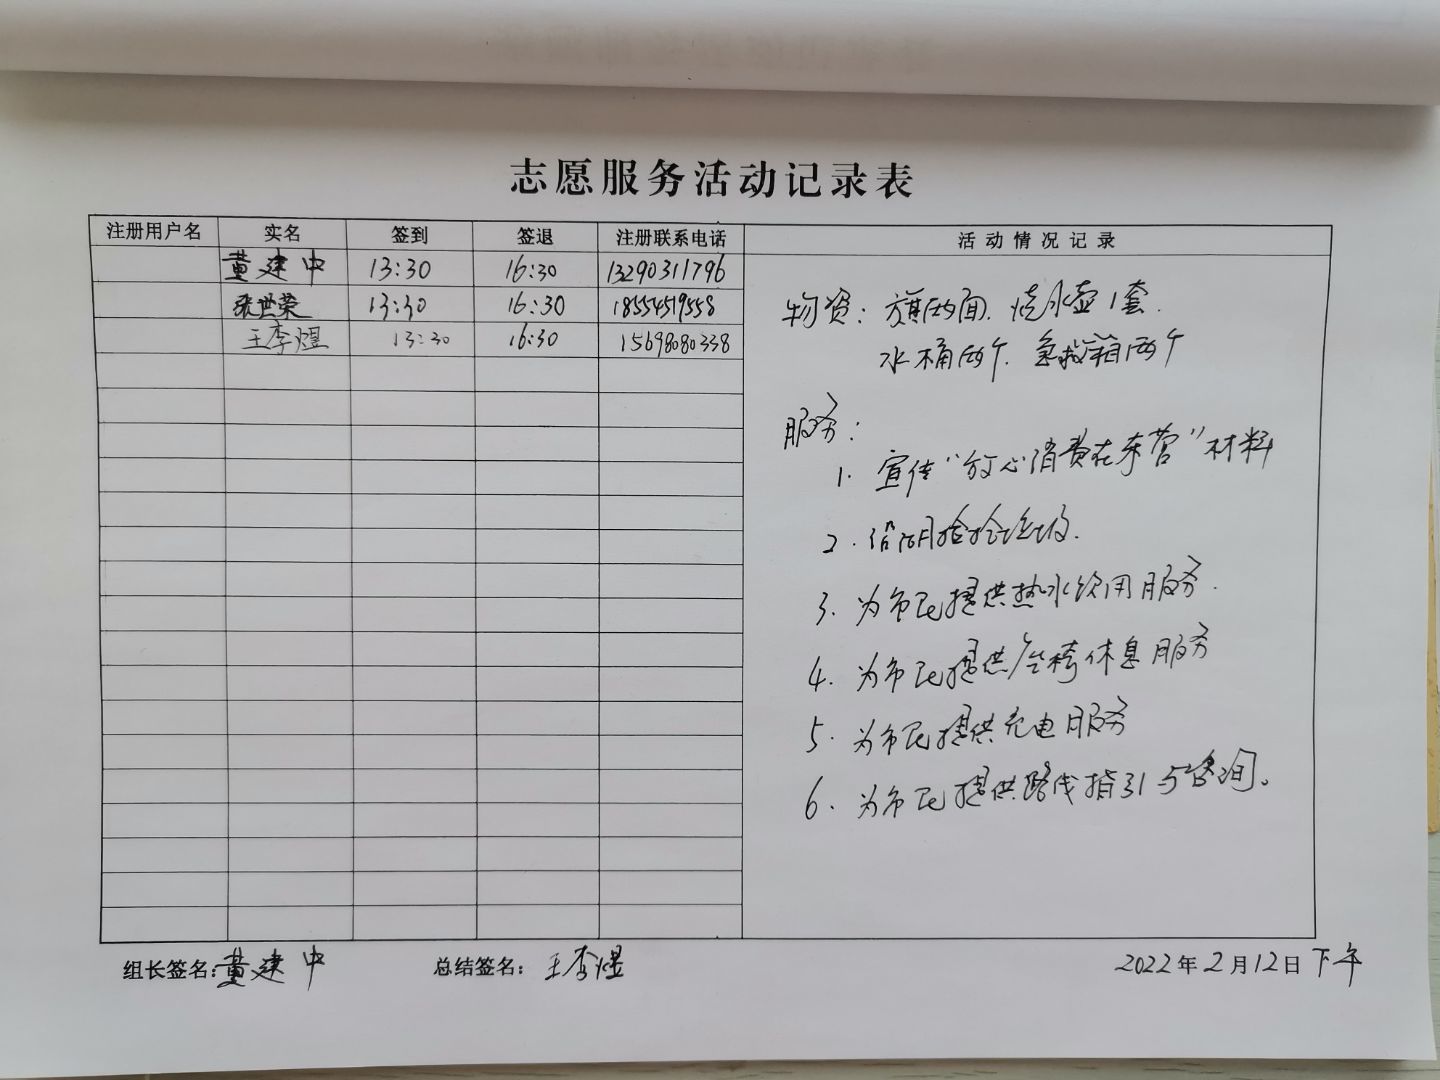 志愿服务活动记录表
注册用户名 实名 签到 签退 注册联系电话 活动情况记录
黄建中 13:30 16:30 13290311796
张世荣 13:30 16:30 18554519558
王李煜 13:30 16:30 15698080338
物资：旗两面、烧水壶1套.
水桶两个、急救箱两个
服务：
1. 宣传“放心消费在东营”材料
2. 沿湖捡拾垃圾.
3. 为市民提供热水饮用服务.
4. 为市民提供休息服务
5. 为市民提供充电服务
6. 为市民提供路线指引与咨询。
组长签名：黄建中 总结签名：王李煜 2022年2月12日下午